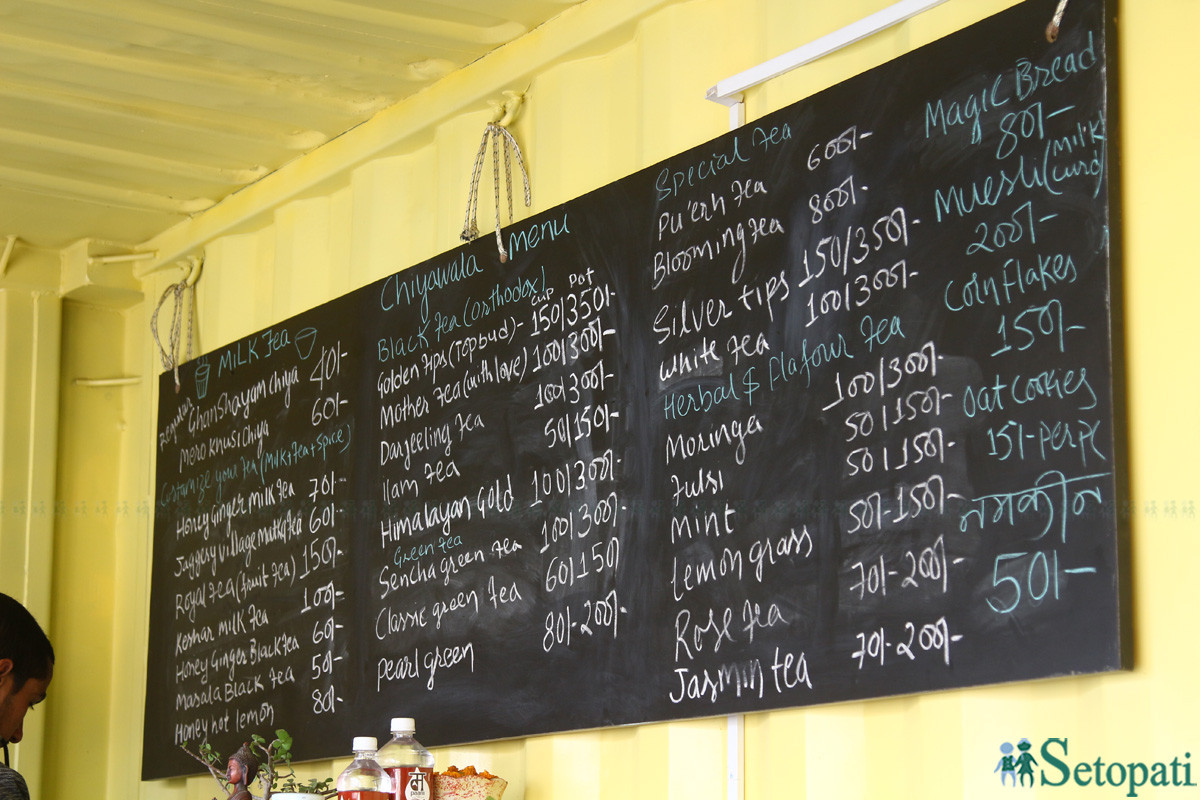 MiLK Tea
Regular
Ghanshayam Chiya 40/-
Mero Khusi Chiya 60/-
Customize your tea (Milk+Tea+Spice)
Honey Ginger milk Tea 70/-
Juggery village matka Tea 60/-
Royal Tea (fruit Tea) 150/-
Keshar milk Tea 100/-
Honey Ginger Black tea 60/-
Masala Black Tea 50/-
Honey hot lemon 80/-
Chiyawala menu
Black Tea (Orthodox) Cup Pot
Golden Tips (Topbud)- 150/350/-
Mother Tea (with love) 100/300/-
Darjeeling Tea 100/300/-
Ilam Tea 50/150/-
Himalayan Gold 100/300/-
Green Tea
Sencha green Tea 100/300/-
Classic green Tea 60/150
Pearl green 80/-200/-
Special Tea
Pu'erh Tea 600/-
Blooming Tea 800/-
Silver tips 150/350/-
White Tea 100/300/-
Herbal $ Flafour Tea
Moringa 100/300/-
Tulsi 50/150/-
Mint 50/150/-
Lemon grass 50/-150/-
Rose Tea 70/-200/-
Jasmin tea 70/-200/-
Magic Bread
80/-
Muesli (milk/curd)
200/-
Corn Flakes
150/-
Oat Cookies
15/-per pc
नमकीन
50/-
Setopati